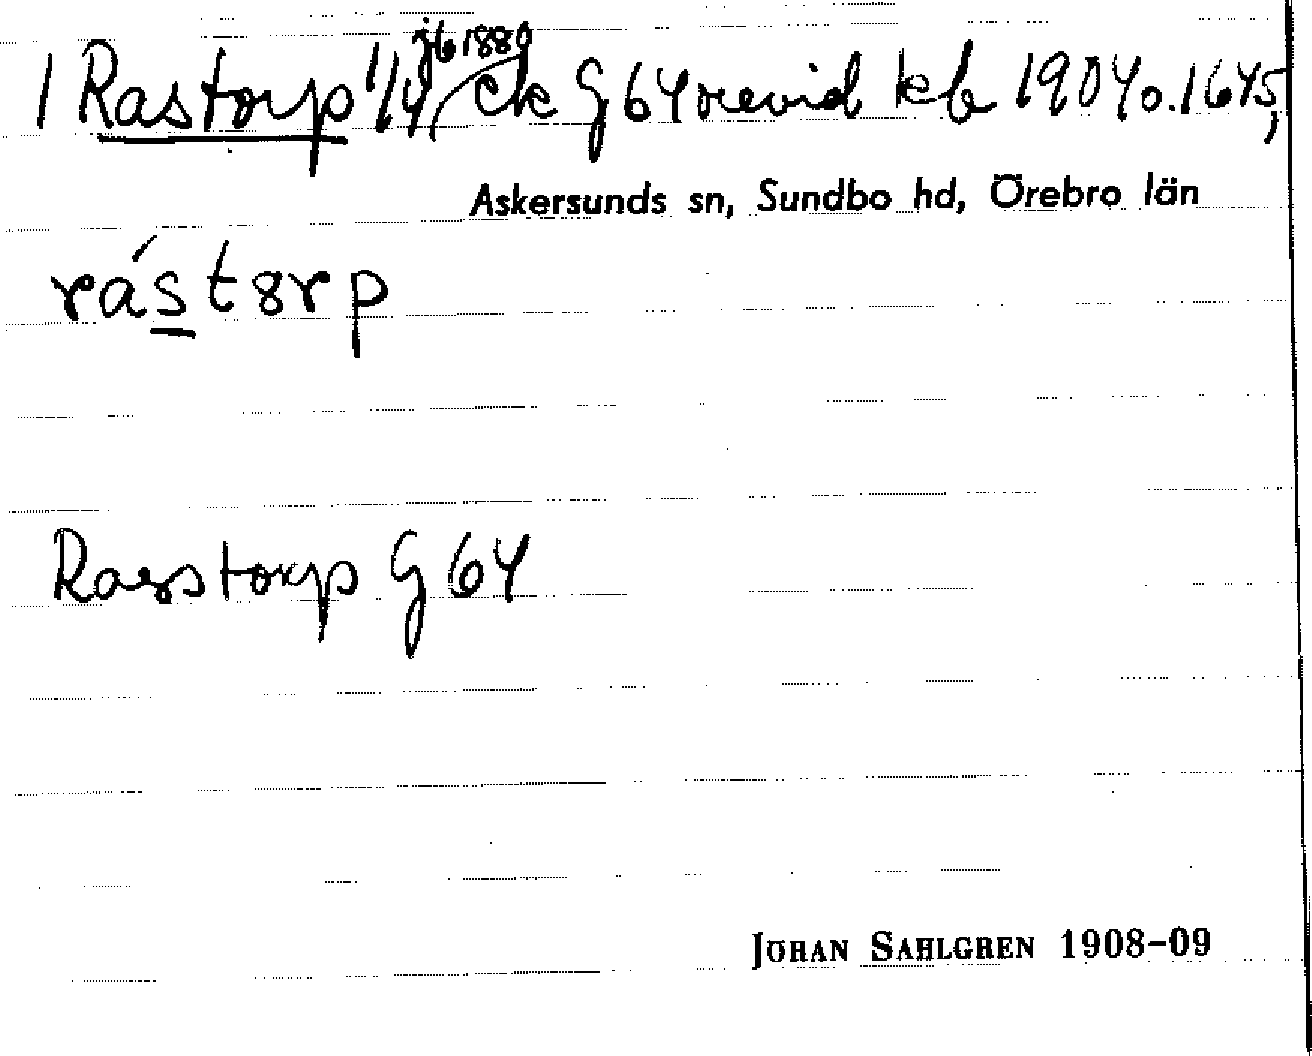 jb 1880
1 Rastorp 1/4 ck G 64 revid kb 1904 o. 1645,
Askersunds sn, Sundbo hd, Örebro län
rástorp
Rasstorp G 64
JOHAN SAHLGREN 1908-09